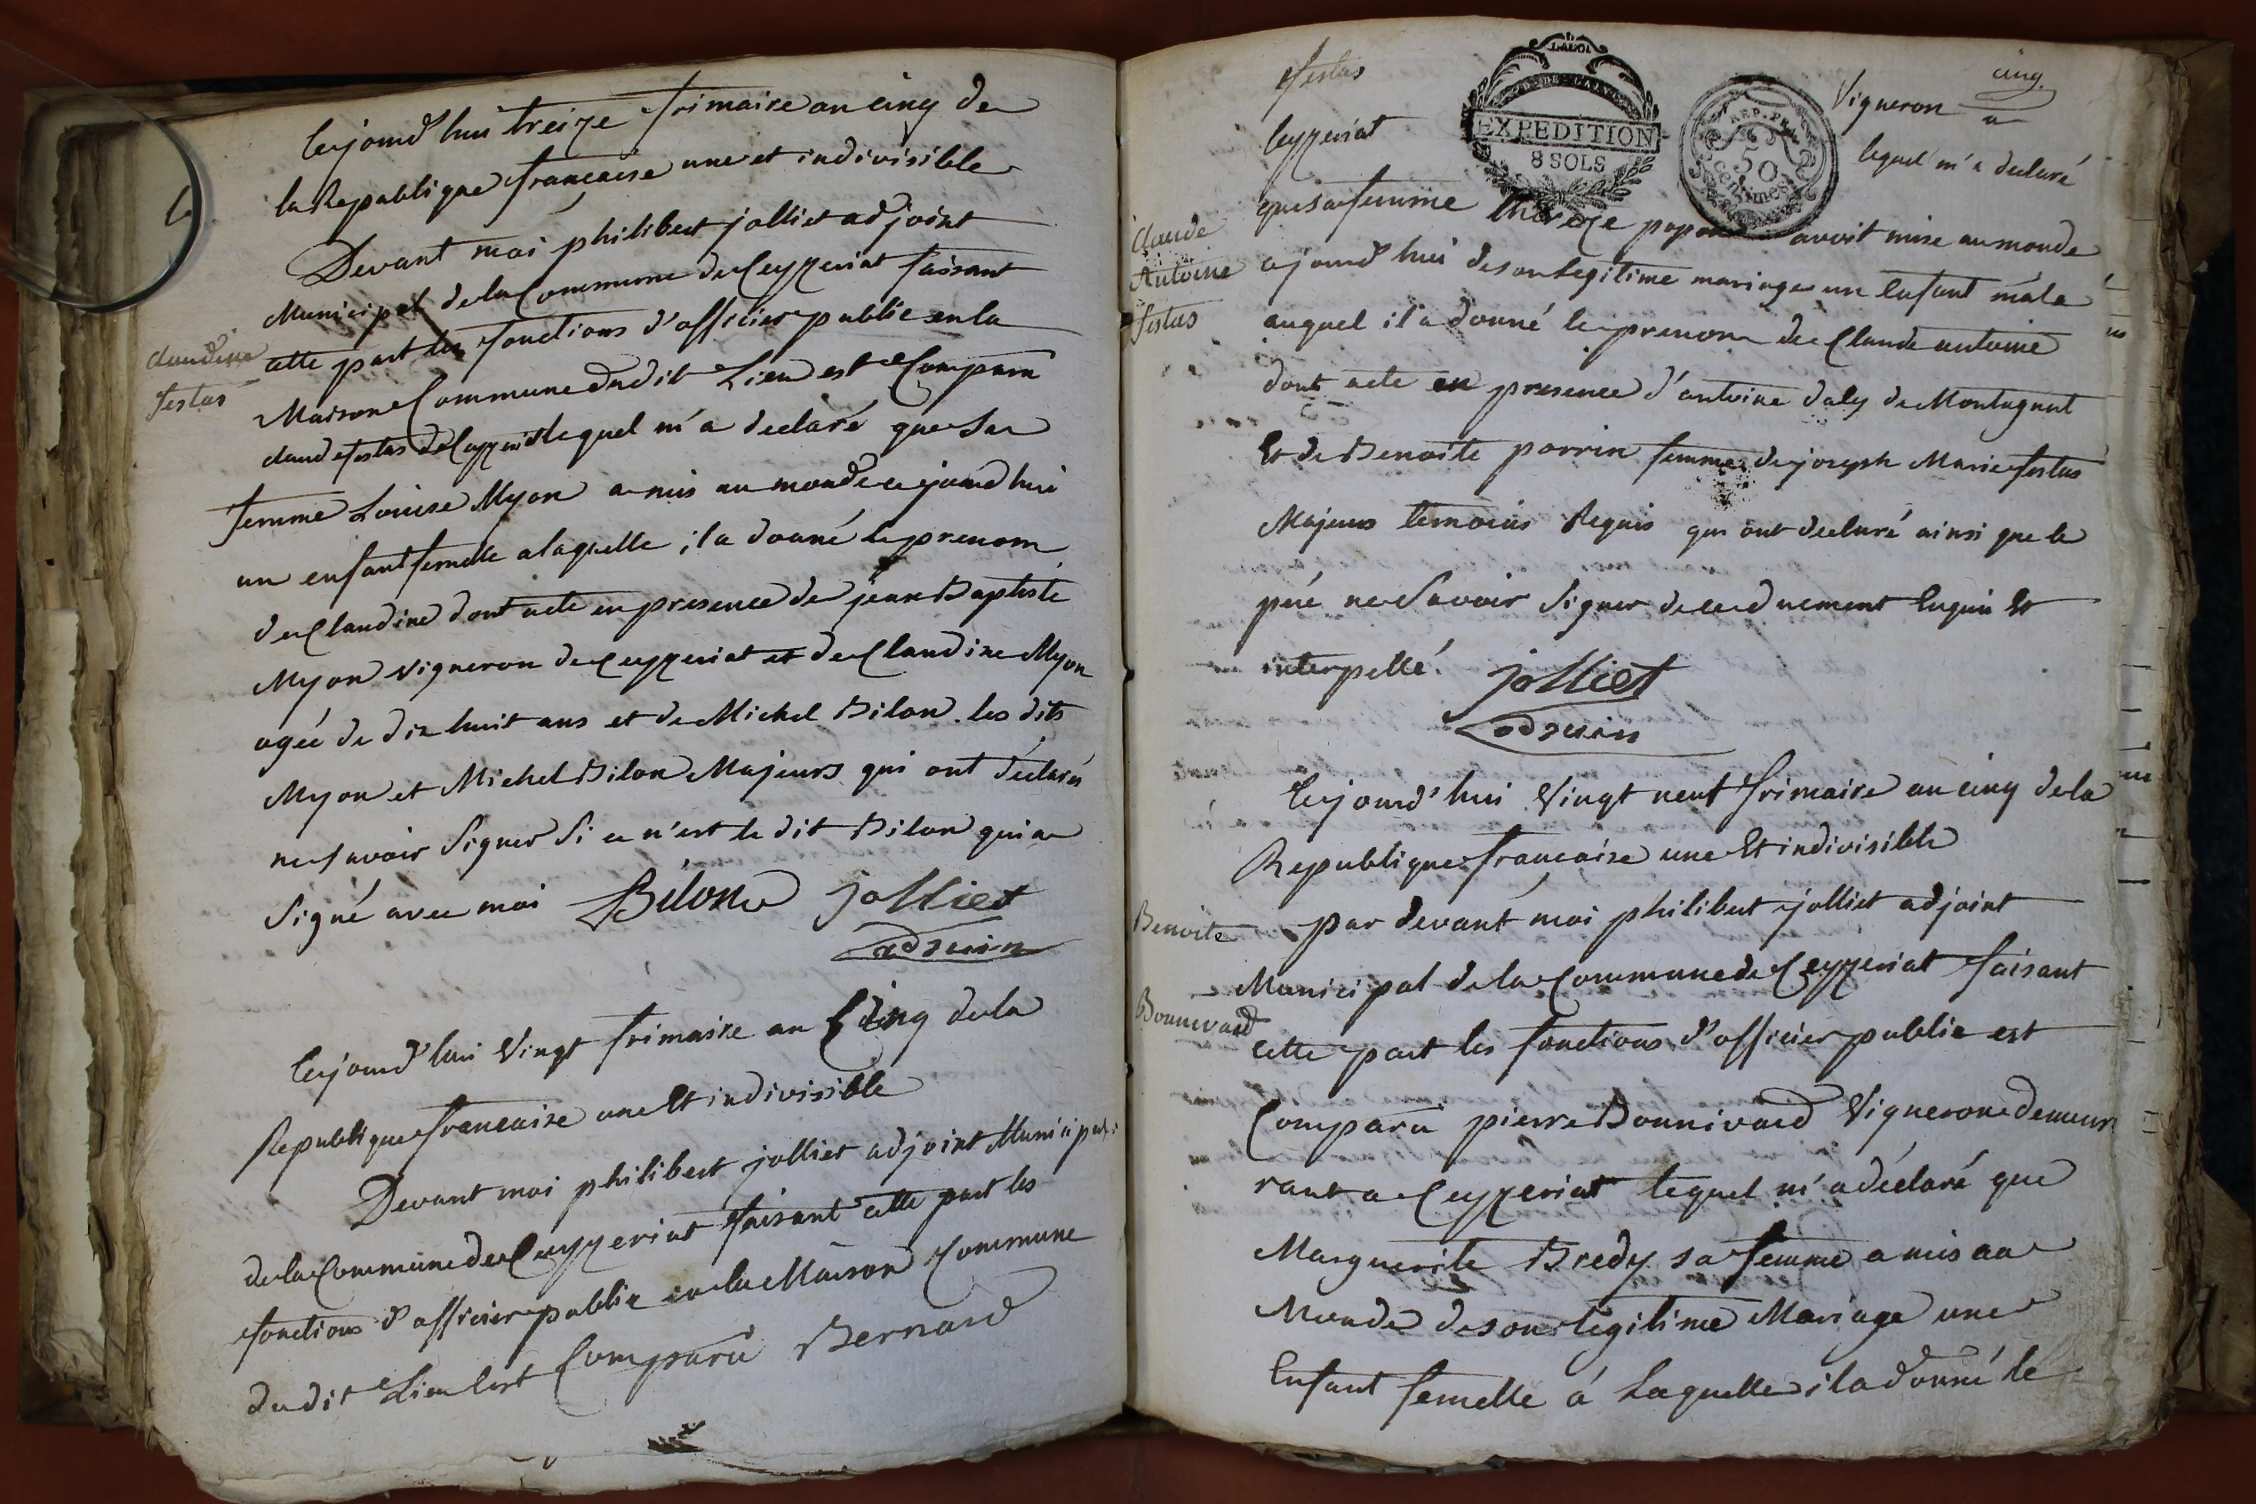 Cejourd'hui treize frimaire an cinq de
la Republique francaise une et indivisible
Devant moi philibert jolliet adjoint
Municipal de la Commune de Ceyzeriat faisant
cette part les fonctions d'officier public en la
claudine
festas
Maison Commune dudit Lieu est Comparu
claude festas de Ceyzeriat lequel m'a declaré que sa
femme Louise Myon a mis au monde cejourd'hui
un enfant femelle a laquelle il a donné le prenom
de Claudine dont acte en presence de jean Baptiste
Myon vigneron de Ceyzeriat et de Claudine Myon
agée de dix huit ans et de Michel Bilon les dits
Myon et Michel Bilon Majeurs qui ont déclarés
ne savoir Signer Si ce n'est le dit Bilon qui a
Signé avec moi Bilon jolliet
adjoin
Cejourd'hui Vingt frimaire an Cinq de la
Republique francaise une Et indivisible
Devant moi philibert jolliet adjoint Municipal
de la Commune de Ceyzeriat faisant cette part les
fonctions d'officier public en la Maison Commune
du dit Lieu Est Comparu Bernard
cinq
festas
LADOI
EXPEDITION
8 SOLS
REP. FRA.
50
centimes
Vigneron a
Ceyzeriat
lequel m'a declaré
que sa femme thereze popon avoit mise au monde
Claude
Antoine
festas
cejourd'hui de son legitime mariage un Enfant mâle
auquel il a donné le prenom de Claude antoine
dont acte en presence d'antoine daly de Montagnat
Et de Benoite porrin femme de joseph Marie festas
Majeurs temoins Requis qui ont declaré ainsi que le
pere ne Savoir Signer de ce duement Enquis Et
interpellé. jolliet
adjoin
Cejourd'hui Vingt neuf frimaire an cinq de la
Republique francaise une Et indivisible
Benoite
Bonnivard
par devant moi philibert jolliet adjoint
Municipal de la Commune de Ceyzeriat faisant
cette part les fonctions d'officier public est
Comparu pierre Bonnivard Vigneron demeur
rant a Ceyzeriat lequel m'a déclaré que
Marguerite Bredy sa femme a mis au
Monde de son legitime Mariage une
Enfant femelle á Laquelle il a donné le